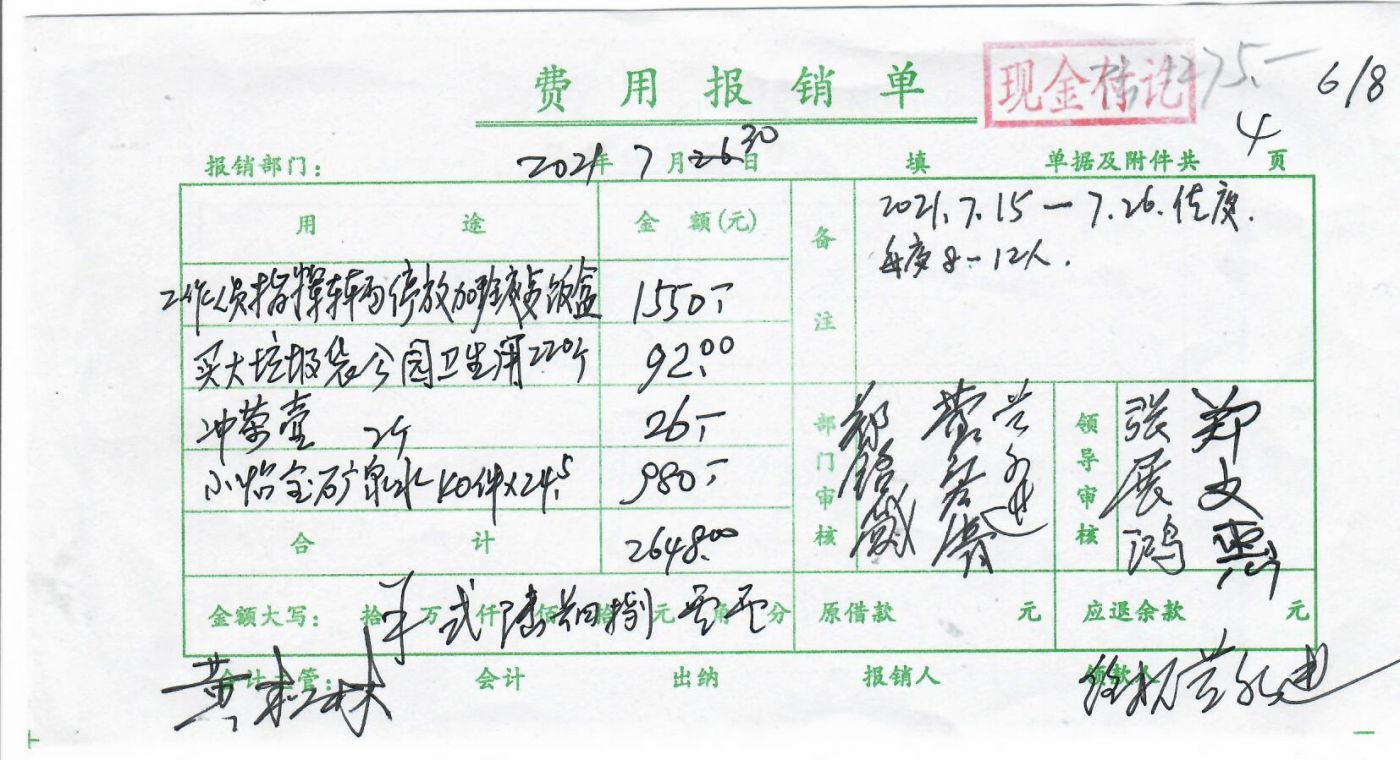 费用报销单
现金付讫
75.-
6/8
报销部门：
2021年7月26 30日
填
单据及附件共4页
用途
金额(元)
备注
2021.7.15—7.26.
每度8-12人.
工作人员指挥车辆停放加班 饭盒
1550.-
买大垃圾袋公园卫生用220个
92.00
冲茶壶 2个
26.-
小怡宝矿泉水 40件×24.5
980.-
合计
2648.00
部门审核
领导审核
张展鸿
郑文
金额大写：
拾 万 贰仟 陆佰 肆拾 捌元 零角 零分
原借款 元
应退余款 元
会计主管：
会计
出纳
报销人
领款人